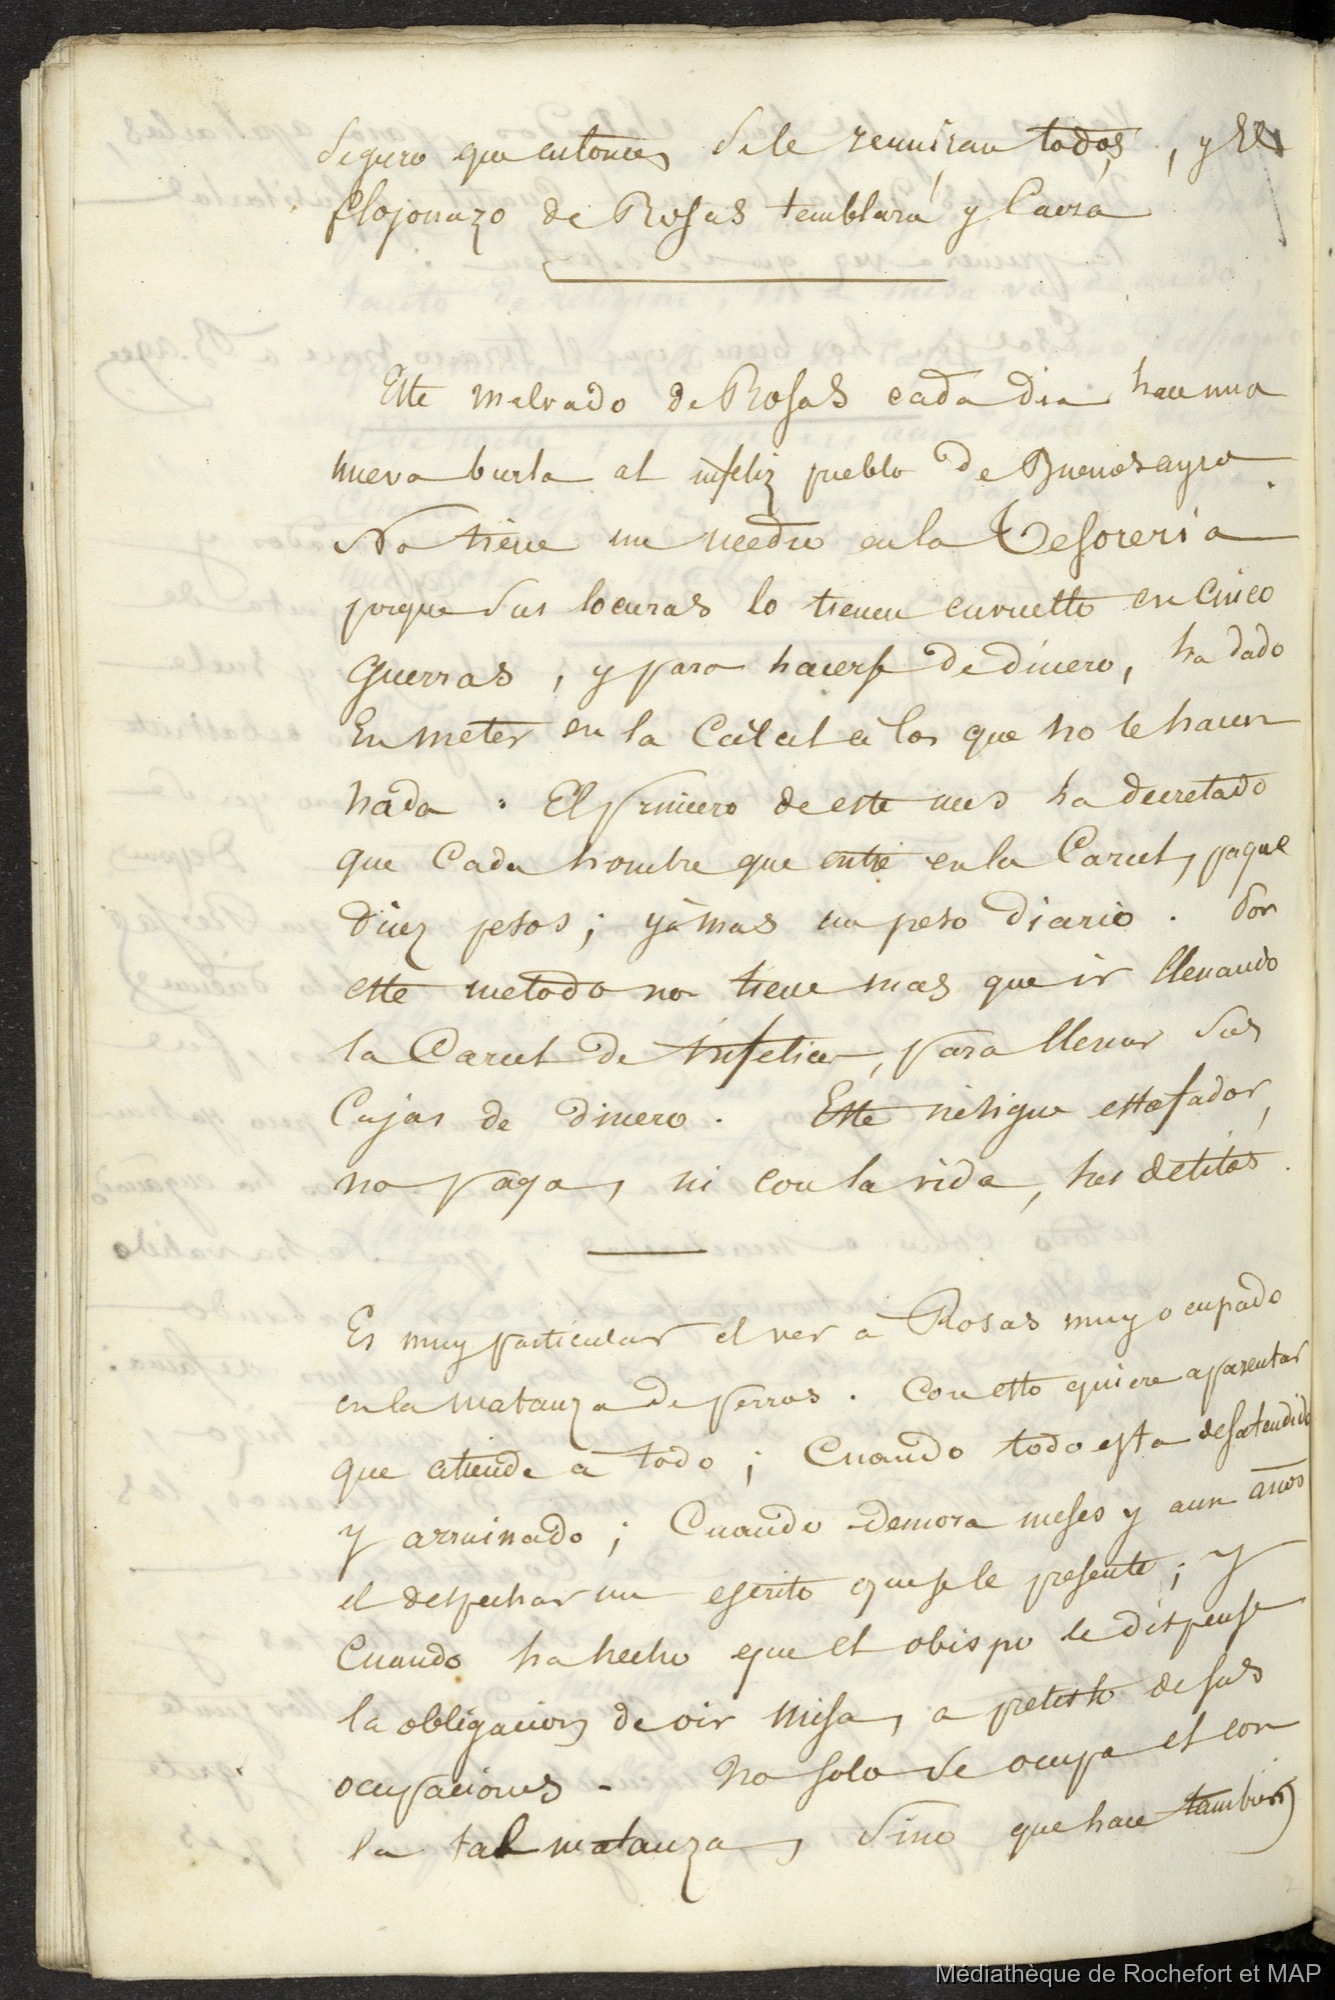 Seguro que entonces se le reuniran todos, y El
flojonazo de Rosas temblará y Caera
Este malvado de Rosas cada dia hace una
nueva burla al infeliz pueblo de Buenosayres.
No tiene un medio en la Tesoreria
porque sus locuras lo tienen envuelto en Cinco
guerras, y para hacerse de dinero, ha dado
En meter en la Carcel a los que no le hacen
nada. El primero de este mes ha decretado
que Cada hombre que entre en la Carcel, pague
Diez pesos; y á mas un peso Diario. Por
este metodo no tiene mas que ir llenando
la Carcel de Infelices, para llenar Sus
Cajas de dinero. Este insigne estafador,
no paga, ni con la vida, sus delitos.
Es muy particular el ver a Rosas muy ocupado
en la matanza de perros. Con esto quiere aparentar
que atiende a todo; Cuando todo esta desatendido
y arruinado; Cuando demora meses y aun años
el despachar un escrito que se le presente; y
Cuando ha hecho que el obispo le dispense
la obligacion de oir Misa, a pretesto de sus
ocupaciones. No solo se ocupa el con
la tal matanza, Sino que hace tambien
Médiathèque de Rochefort et MAP